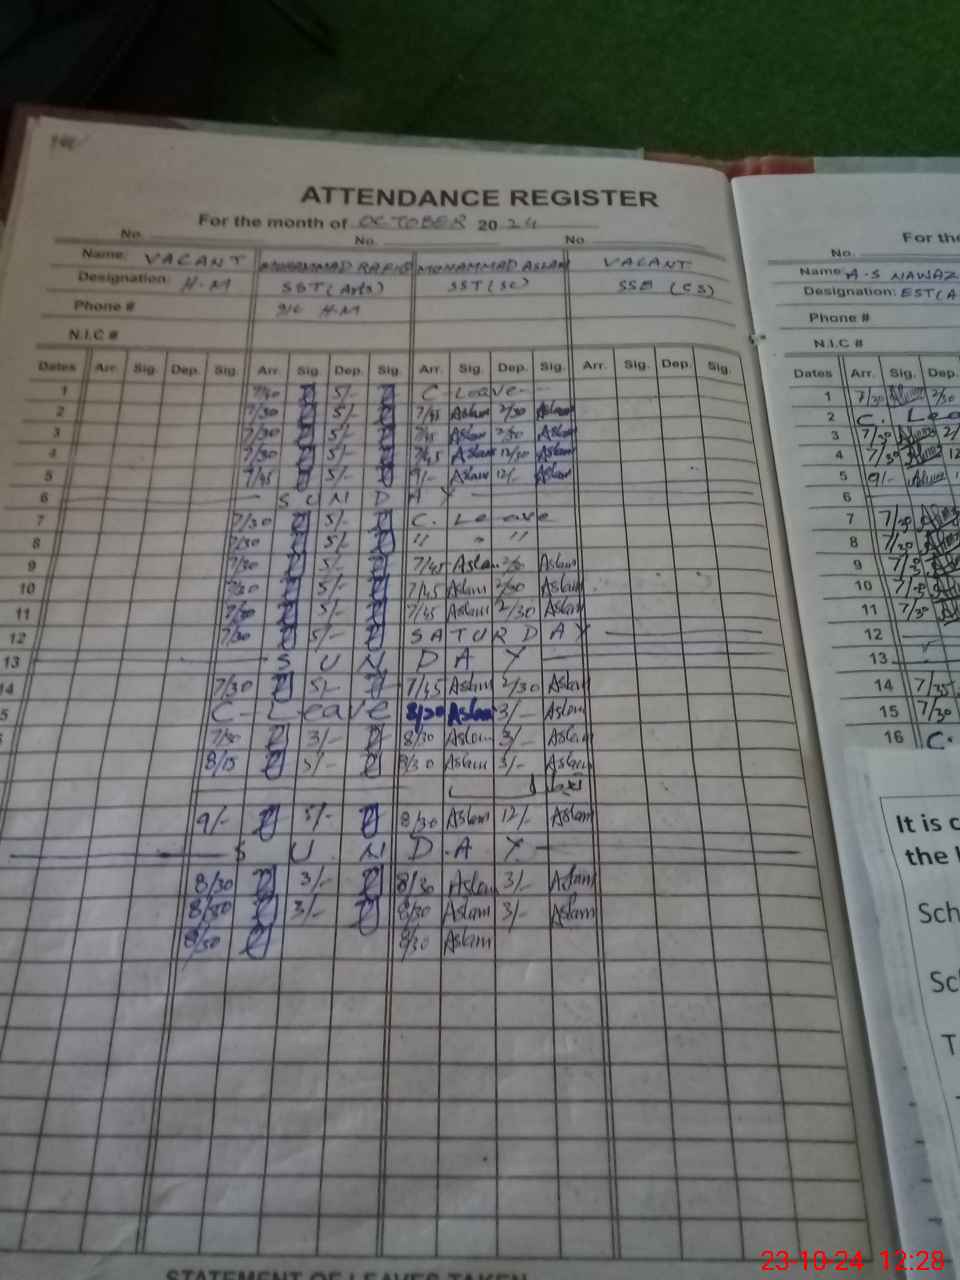 ATTENDANCE REGISTER
For the month of OCTOBER 2024
No. No. No.
Name: VACANT MOHAMMAD RAFIQ MOHAMMAD ASLAM VACANT
Designation: H-M SST (Arts) SST (SC) (CS)
Phone # H-M
N.I.C #
Dates Arr. Sig. Dep. Sig. Arr. Sig. Dep. Sig. Arr. Sig. Dep. Sig. Arr. Sig. Dep. Sig.
1 5/- C-Leave
2 7/30 5/- 7/45 Aslam 2/30 Aslam
3 7/30 5/- 7/45 Aslam 2/30 Aslam
4 7/30 5/- 7/45 Aslam 12/30 Aslam
5 5/- 9/- Aslam 12/- Aslam
6 SUNDAY
7 7/30 5/- C. Leave
8 7/30 5/- " " "
9 7/30 5/- 7/45 Aslam Aslam
10 7/30 5/- 7/45 Aslam 2/30 Aslam
11 7/30 5/- 7/45 Aslam 2/30 Aslam
12 7/30 5/- SATURDAY
13 SUNDAY
14 7/30 5/- 7/45 Aslam 2/30 Aslam
5 C-Leave 8/30 Aslam 3/- Aslam
7/30 3/- 8/30 Aslam 3/- Aslam
8/15 5/- 8/30 Aslam 3/- Aslam
9/- 5/- 8/30 Aslam 12/- Aslam
SUNDAY
8/30 3/- 8/30 Aslam 3/- Aslam
8/30 3/- 8/30 Aslam 3/- Aslam
8/30 8/30 Aslam
STATEMENT OF LEAVES TAKEN
For the
No.
Name: A-S NAWAZ
Designation: EST(A
Phone #
N.I.C #
Dates Arr. Sig. Dep.
1 7/30 2/30
2 C. Lea
3 7/30 2/
4 7/30 12
5 9/-
6
7 7/30
8 7/30
9 7/30
10 7/30
11 7/30
12
13
14 7/35
15 7/30
16 C.
It is c
the
Sch
Sc
T
23-10-24 12:28